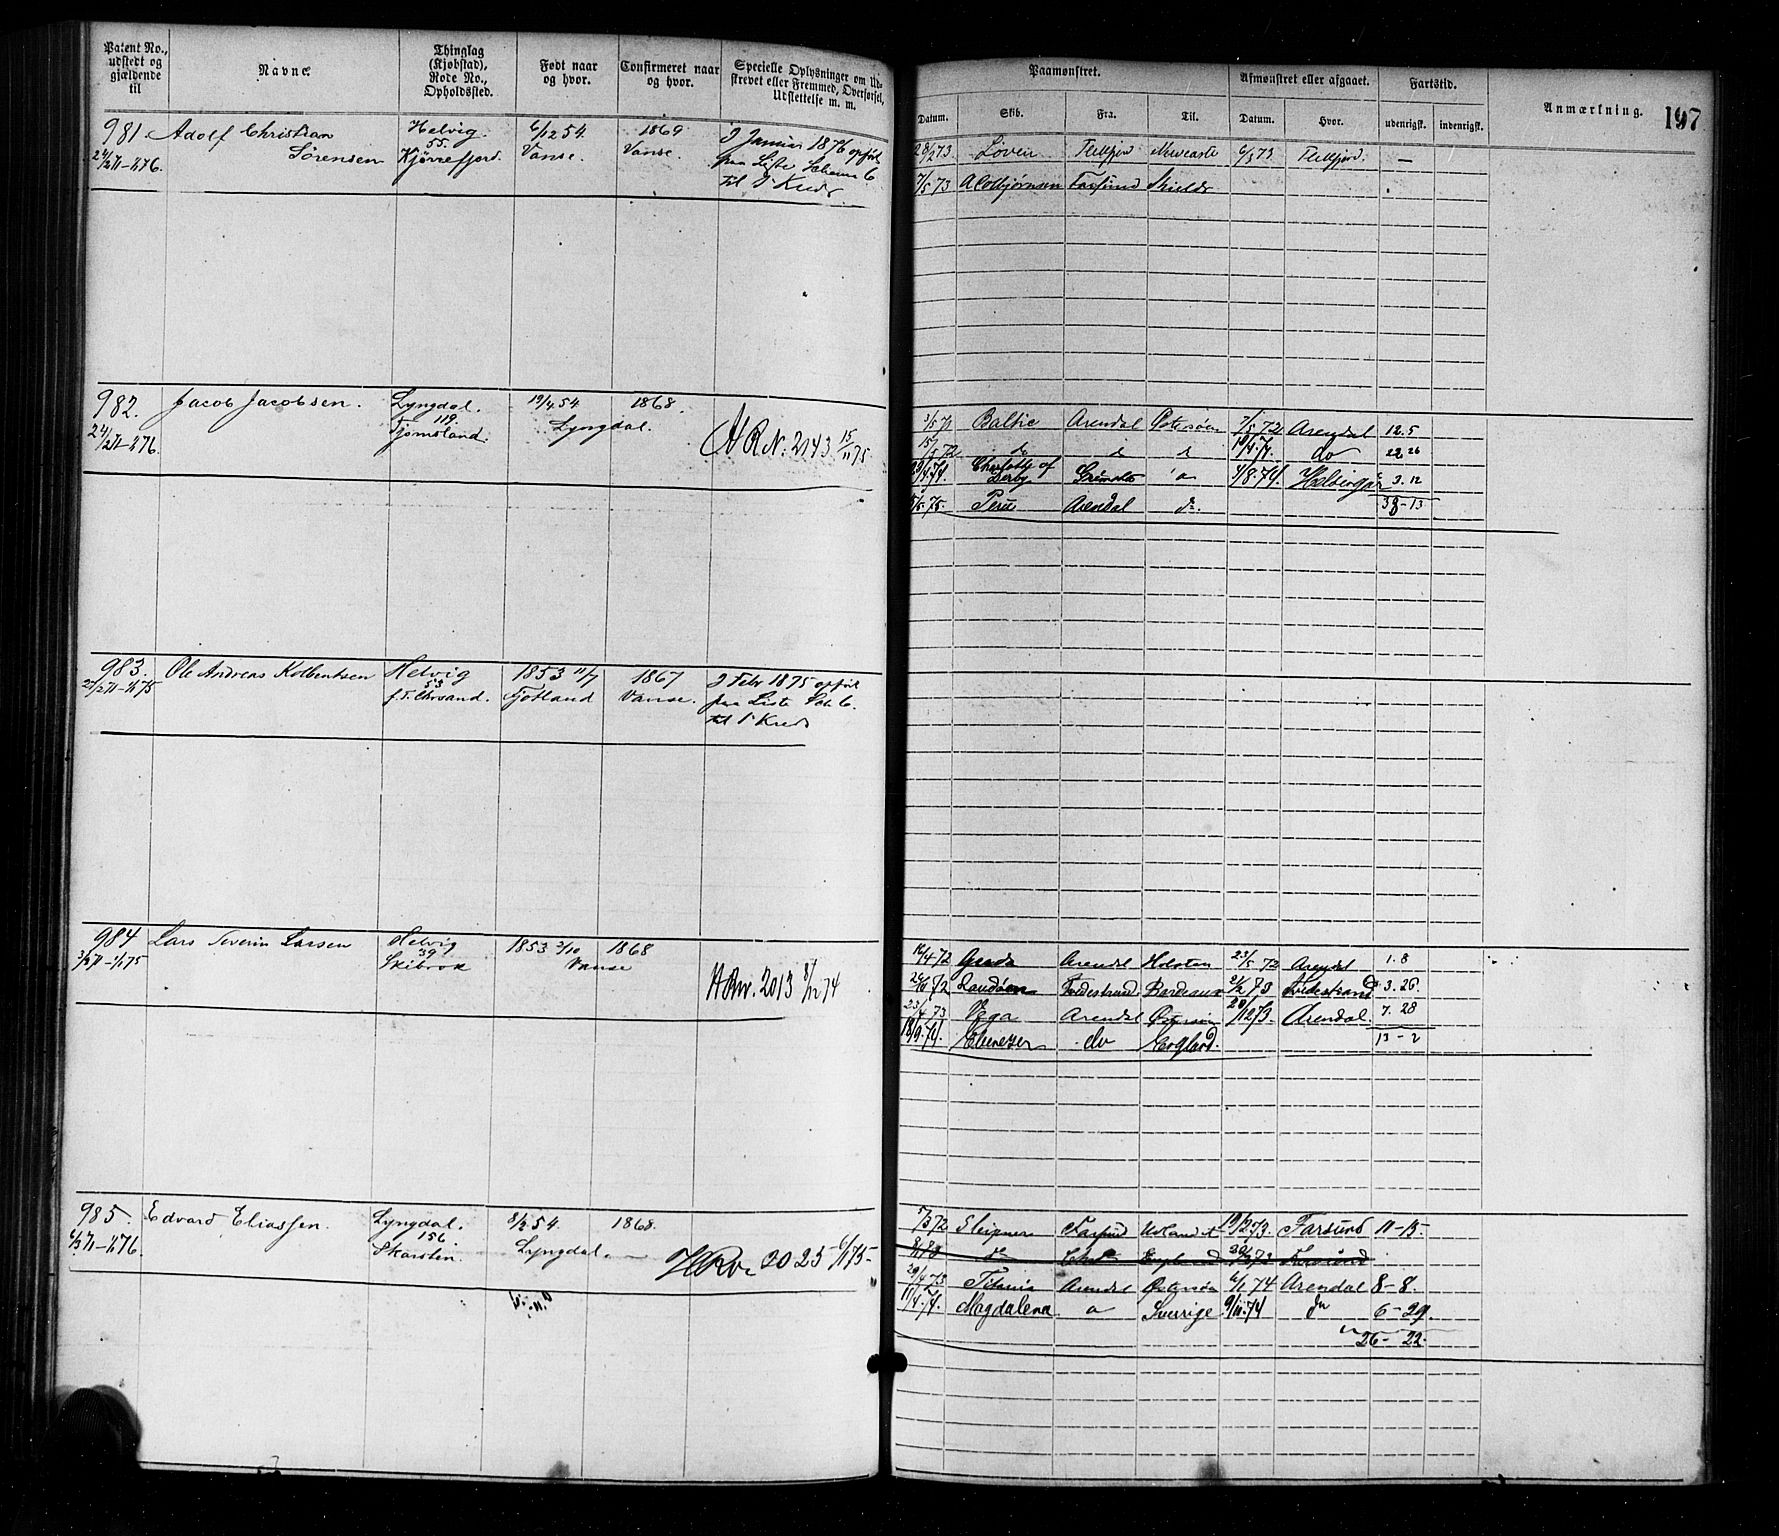 Patent No.,
udstedt og
gjældende
til
Navne.
Thinglag
(Kjøbstad),
Rode No.,
Opholdssted.
Født naar
og hvor.
Confirmeret naar
og hvor.
Specielle Oplysninger om Ud-
skrevet eller Fremmed, Overførsel,
Udslettelse m. m.
981
24/2 71-1/1 76.
Adolf Christian
Sørensen
Helvig.
55.
Kjørrefjord.
6/12 54.
Vanse.
1869
Vanse.
I Januar 1876 opført
paa Liste Schema C
til 1ste Kreds
982.
24/2 71-1/1 76.
Jacob Jacobsen.
Lyngdal.
119.
Tjomsland.
19/4 54
1868.
Lyngdal.
HRN. 2143 15/11 75
983.
25/2 71-1/1 75
Ole Andreas Kolbentsen
Helvig
53
1853 11/7
Fjotland
1867
Vanse.
I Febr 1875 opført
paa Liste Sch C.
til 1 Kreds
984
3/3 71-1/1 75
Lars Severin Larsen
Helvig
39
Skibrok
1853 3/10
1868
Vanse
HRnr. 2013 8/12 74
985.
6/3 71-1/1 76.
Edvard Eliassen.
Lyngdal.
156
Skarstin.
8/2 54.
Lyngdal.
1868.
HRnr 2025 6/1 75-
Paamønstret.
Afmønstret eller afgaaet.
Fartstid.
Anmærkning.
197
Datum.
Skib.
Fra.
Til.
Datum.
Hvor.
udenrigsk.
indenrigsk.
28/2 73. Løven Flekkfjord Newcastle 6/3 73 Flekkfjord. —
7/5 73 A Colbjørnsen Farsund Shields
3/5 71 Baltic Arendal Østersøen 7/5 72 Arendal 12.5
15/5 72 do 19/4 74. do 22 26
Charlotte of
Derby Grimstad 4/8.74. Helsingør 3.12
5/5.75. Peru Arendal do. 38-13
16/4 72 Arendal Holsten 23/5 72 Arendal 1.8
Tvedestrand. Bordeaux Tvedestrand 3.26
23/4 73 Vega Arendal Arendal. 7.28
18/9.74. Ebeneser do England. 13-2
7/3 72 Sleipner Farsund Udlandet 19/12 73. Farsund 11-15-
do England Farsund
29/4 73 Titania Arendal Østersøen 6/1 74 Arendal 8-8.
11/4.74. Magdalena Sverige 9/11.74 do 6-29.
26-22-